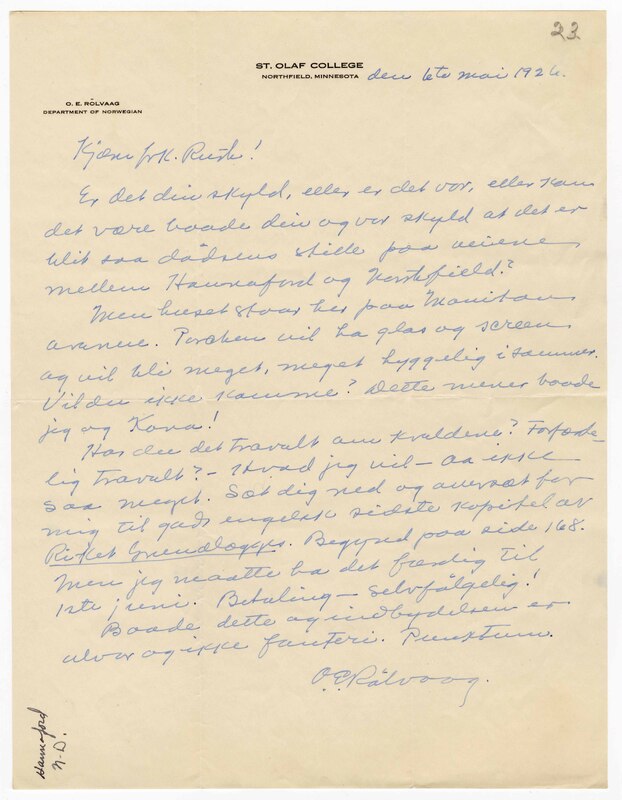 23
ST. OLAF COLLEGE
NORTHFIELD, MINNESOTA
den 6te mai 1926.
O. E. RÖLVAAG
DEPARTMENT OF NORWEGIAN
Kjære frk. Rusk!
Er det din skyld, eller er det vor, eller kan
det være baade din og vor skyld at det er
blit saa dödsens stille paa veiene
mellem Hannaford og Northfield?
Men huset staar her paa Manitou
avenue. Porchen vil ha glas og screen
og vil bli meget, meget hyggelig i sommer.
Vil du ikke komme? Dette mener baade
jeg og Kona!
Har du det travelt om kveldene? Forfærde-
lig travelt? – Hvad jeg vil – aa ikke
saa meget. Sæt dig ned og oversæt for
mig til god engelsk sidste kapitel av
Riket Grundlægges. Begynd paa side 168.
Men jeg maatte ha det færdig til
1ste juni. Betaling – selvfölgelig!
Baade dette og indbydelsen er
alvor og ikke fanteri. Punktum.
O.E. Rölvaag.
Hannaford
N-D.